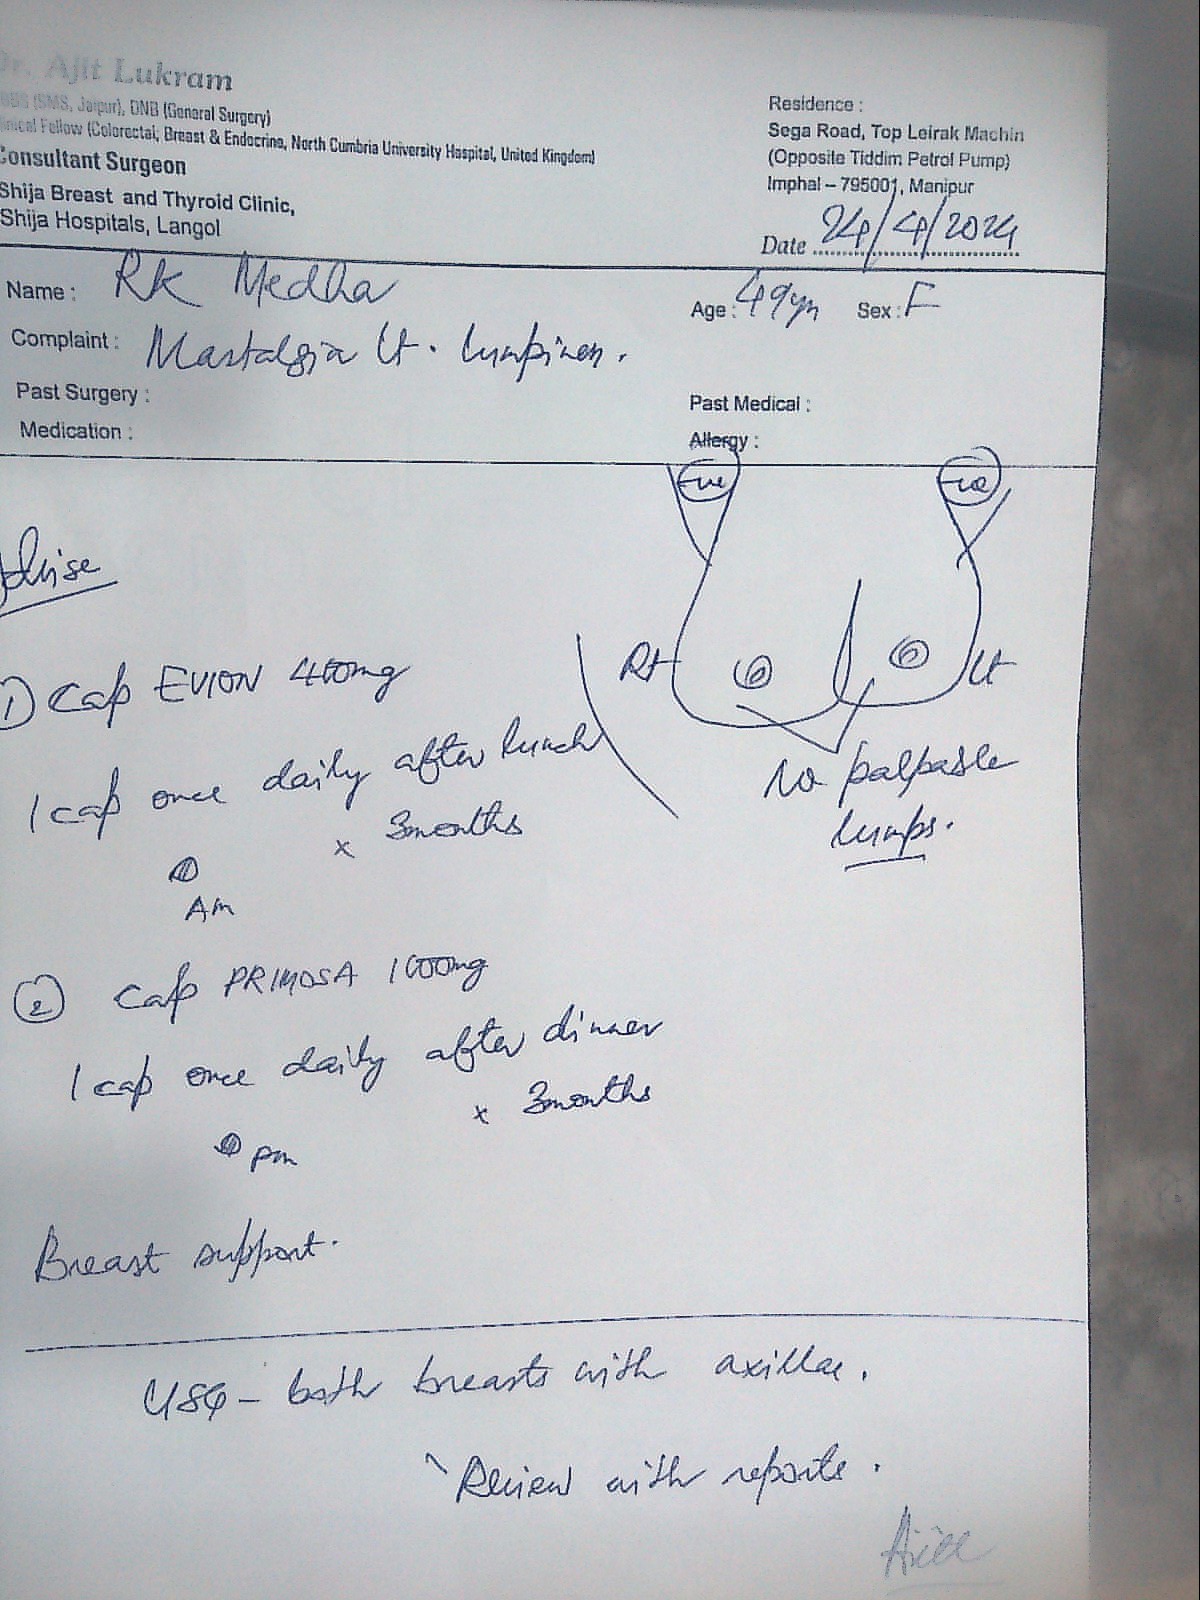 Dr. Ajit Lukram
MBBS (SMS, Jaipur), DNB (General Surgery)
Clinical Fellow (Colorectal, Breast & Endocrine, North Cumbria University Hospital, United Kingdom)
Consultant Surgeon
Shija Breast and Thyroid Clinic,
Shija Hospitals, Langol
Residence :
Sega Road, Top Leirak Machin
(Opposite Tiddim Petrol Pump)
Imphal – 795001, Manipur
Date 24/4/2024
Name : RK Medha
Age : 49yrs Sex : F
Complaint : Mastalgia Lt. lumpiness.
Past Surgery :
Past Medical :
Medication :
Allergy :
-ve -ve
Advise
Rt Lt
No palpable
lumps.
1) Cap EVION 400mg
1 cap once daily after lunch
x 3months
AM
2 Cap PRIMOSA 1000mg
1 cap once daily after dinner
x 3months
pm
Breast support.
USG – both breasts with axillae.
Review with reports.